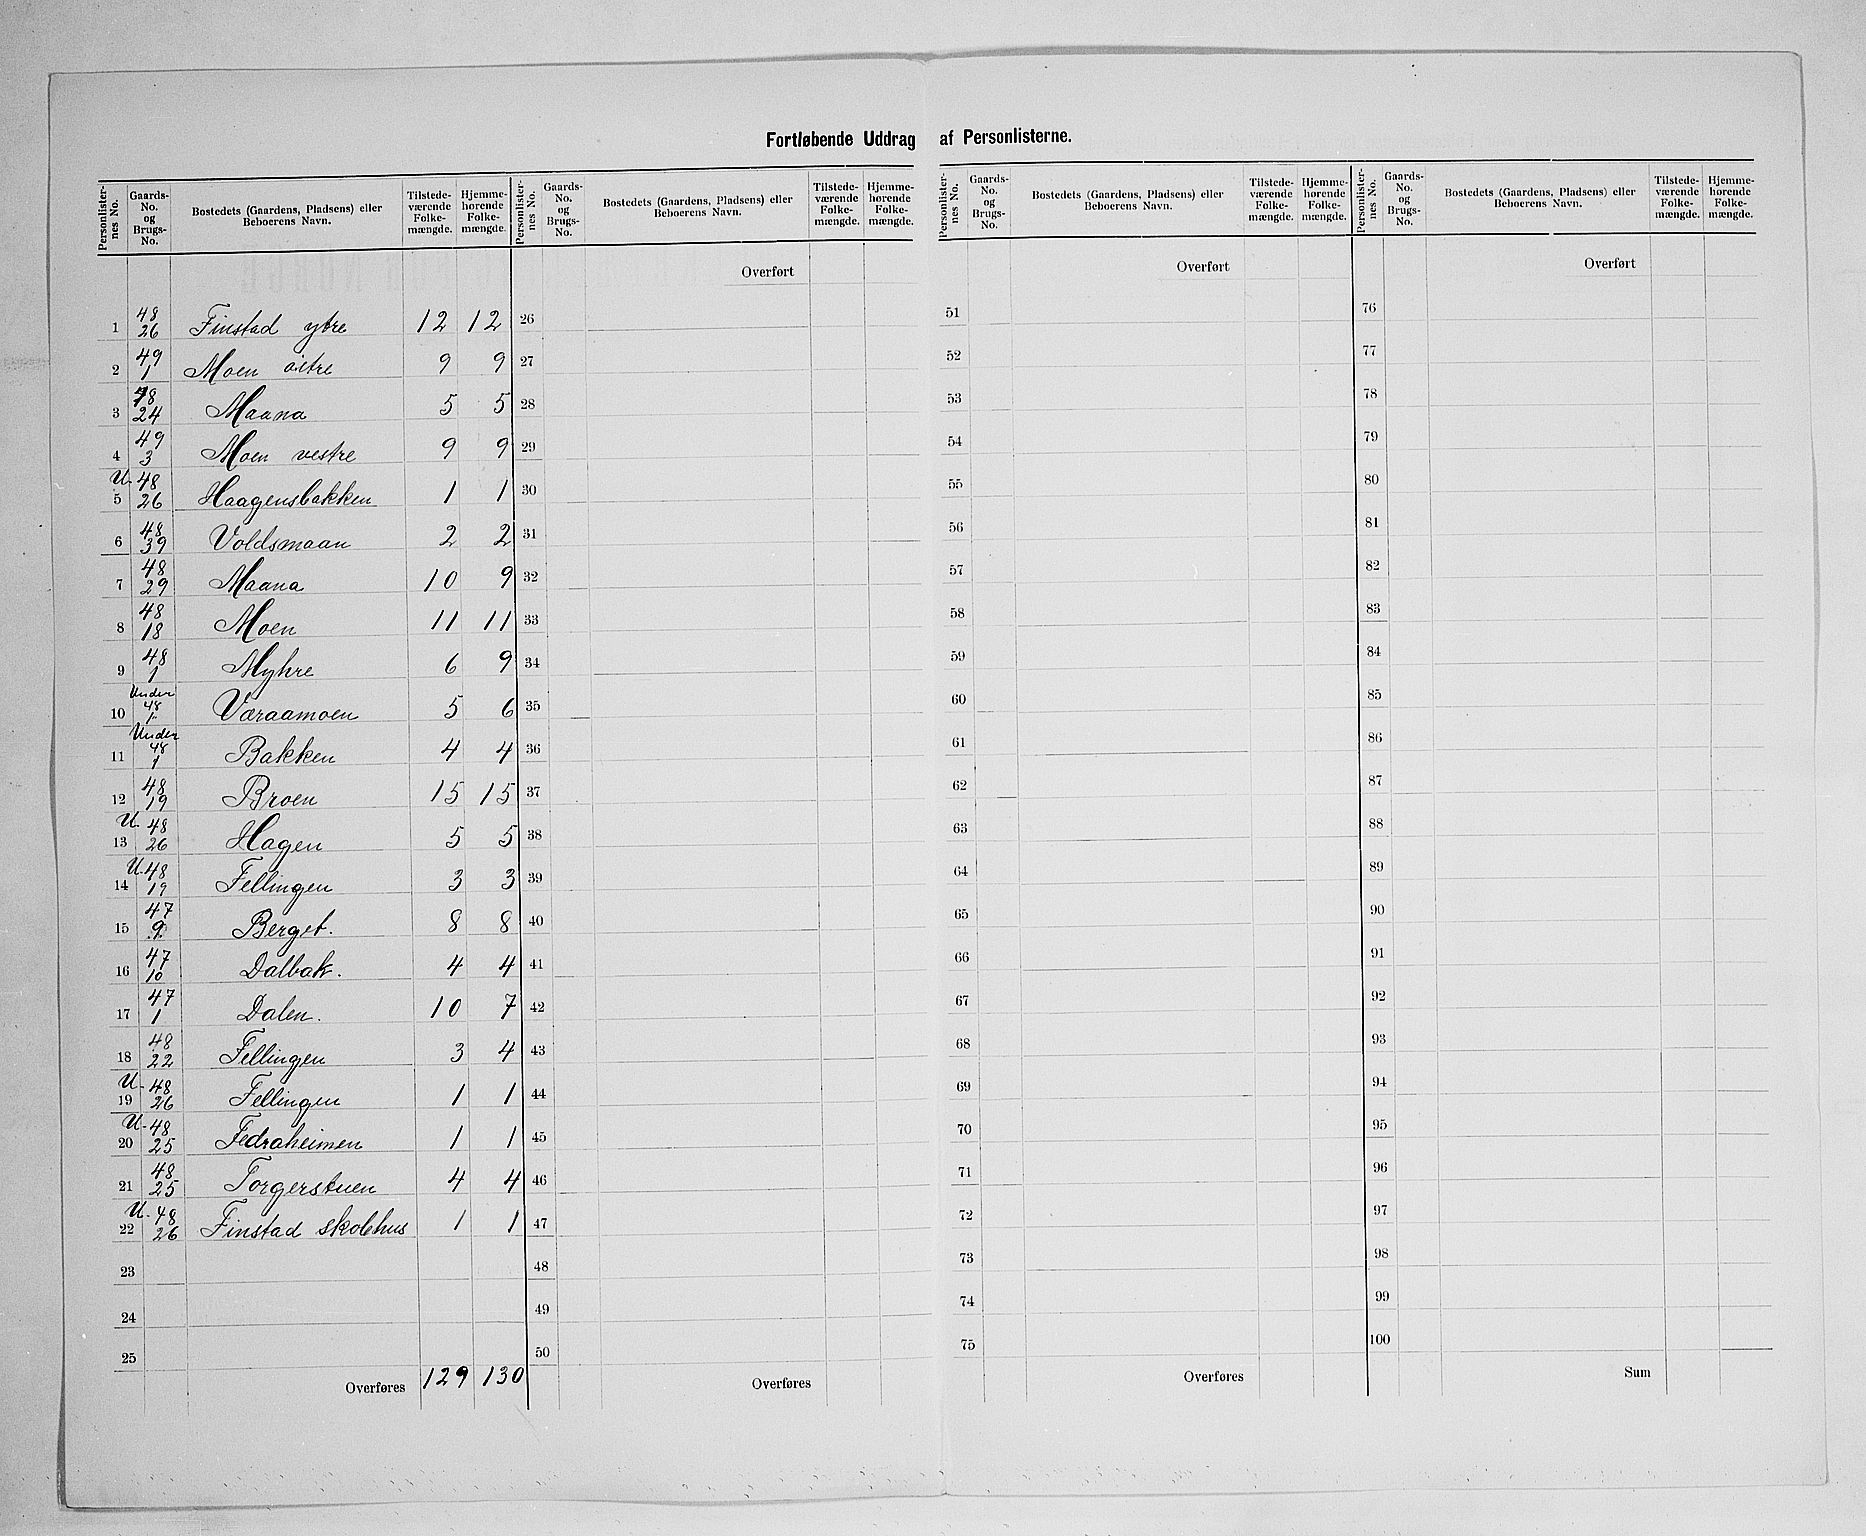 Fortløbende Uddrag af Personlisterne.
Personlisternes No. Gaards-No. og Brugs-No. Bostedets (Gaardens, Pladsens) eller Beboerens Navn. Tilstedeværende Folkemængde. Hjemmehørende Folkemængde.
1 48 26 Finstad ytre 12 12
2 49 1 Moen östre 9 9
3 48 24 Maana 5 5
4 49 3 Moen vestre 9 9
5 U. 48 26 Haagensbakken 1 1
6 48 39 Voldsmaan 2 2
7 48 29 Maana 10 9
8 48 18 Moen 11 11
9 48 1 Myhre 6 9
10 Under 48 1 Væraamoen 5 6
11 Under 48 1 Bakken 4 4
12 48 19 Broen 15 15
13 U. 48 26 Hagen 5 5
14 U. 48 19 Fellingen 3 3
15 47 9 Berget. 8 8
16 47 10 Dalbak. 4 4
17 47 1 Dalen. 10 7
18 48 22 Fellingen 3 4
19 U. 48 26 Fellingen 1 1
20 U. 48 25 Fedraheimen 1 1
21 48 25 Torgerstuen 4 4
22 U. 48 26 Finstad skolehus 1 1
23
24
25
Overføres 129 130
Personlisternes No. Gaards-No. og Brugs-No. Bostedets (Gaardens, Pladsens) eller Beboerens Navn. Tilstedeværende Folkemængde. Hjemmehørende Folkemængde.
Overført
26
27
28
29
30
31
32
33
34
35
36
37
38
39
40
41
42
43
44
45
46
47
48
49
50
Overføres
Personlisternes No. Gaards-No. og Brugs-No. Bostedets (Gaardens, Pladsens) eller Beboerens Navn. Tilstedeværende Folkemængde. Hjemmehørende Folkemængde.
Overført
51
52
53
54
55
56
57
58
59
60
61
62
63
64
65
66
67
68
69
70
71
72
73
74
75
Overføres
Personlisternes No. Gaards-No. og Brugs-No. Bostedets (Gaardens, Pladsens) eller Beboerens Navn. Tilstedeværende Folkemængde. Hjemmehørende Folkemængde.
Overført
76
77
78
79
80
81
82
83
84
85
86
87
88
89
90
91
92
93
94
95
96
97
98
99
100
Sum